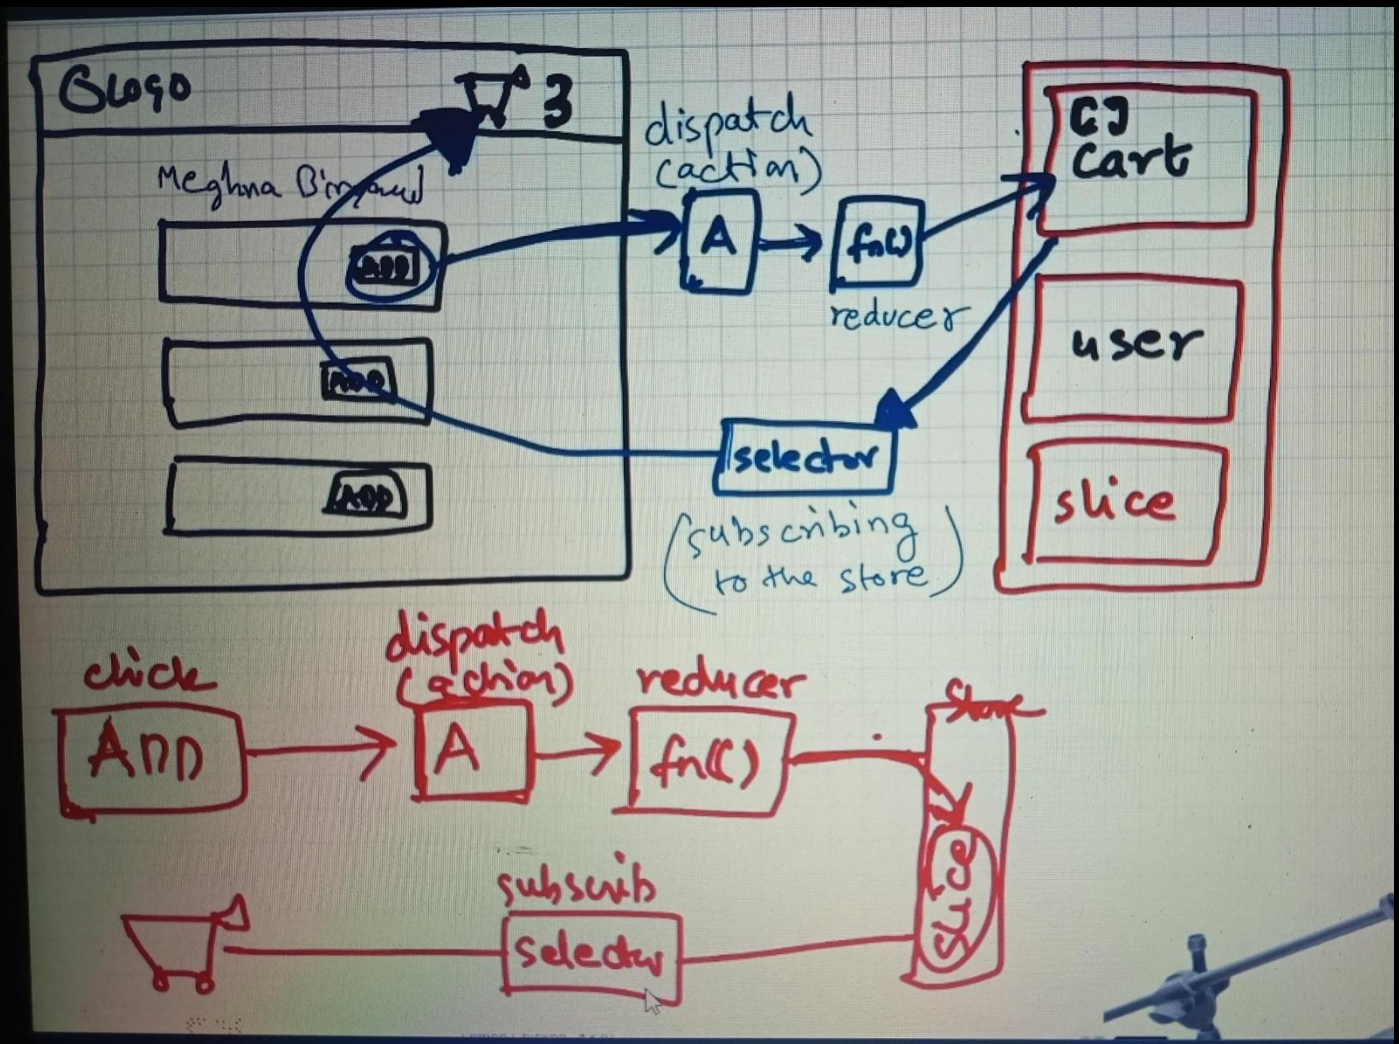 Logo
3
Meghna Biryani
ADD
ADD
ADD
dispatch
(action)
A
fn()
reducer
selector
(subscribing
to the store)
[]
cart
user
slice
click
ADD
dispatch
(action)
A
reducer
fn()
Store
slice
subscrib
selector